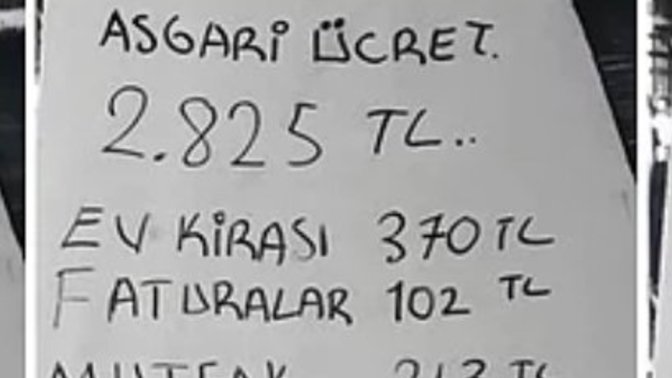 ASGARİ ÜCRET.
2.825 TL..
EV KİRASI 370 TL
FATURALAR 102 TL
MUTFAK TL